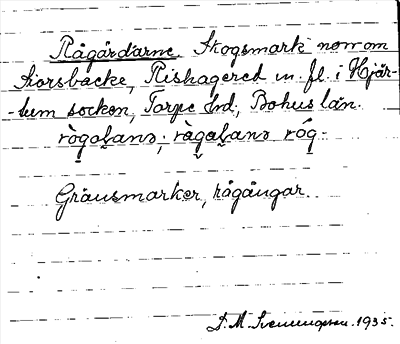 Rågårdarne Skogsmark norr om
Korsbacke, Rishagered m. fl. i Hjär-
-tum socken, Torpe hd., Bohuslän.
Gränsmarker, rågångar.
D. M. Svenungsson. 1935.